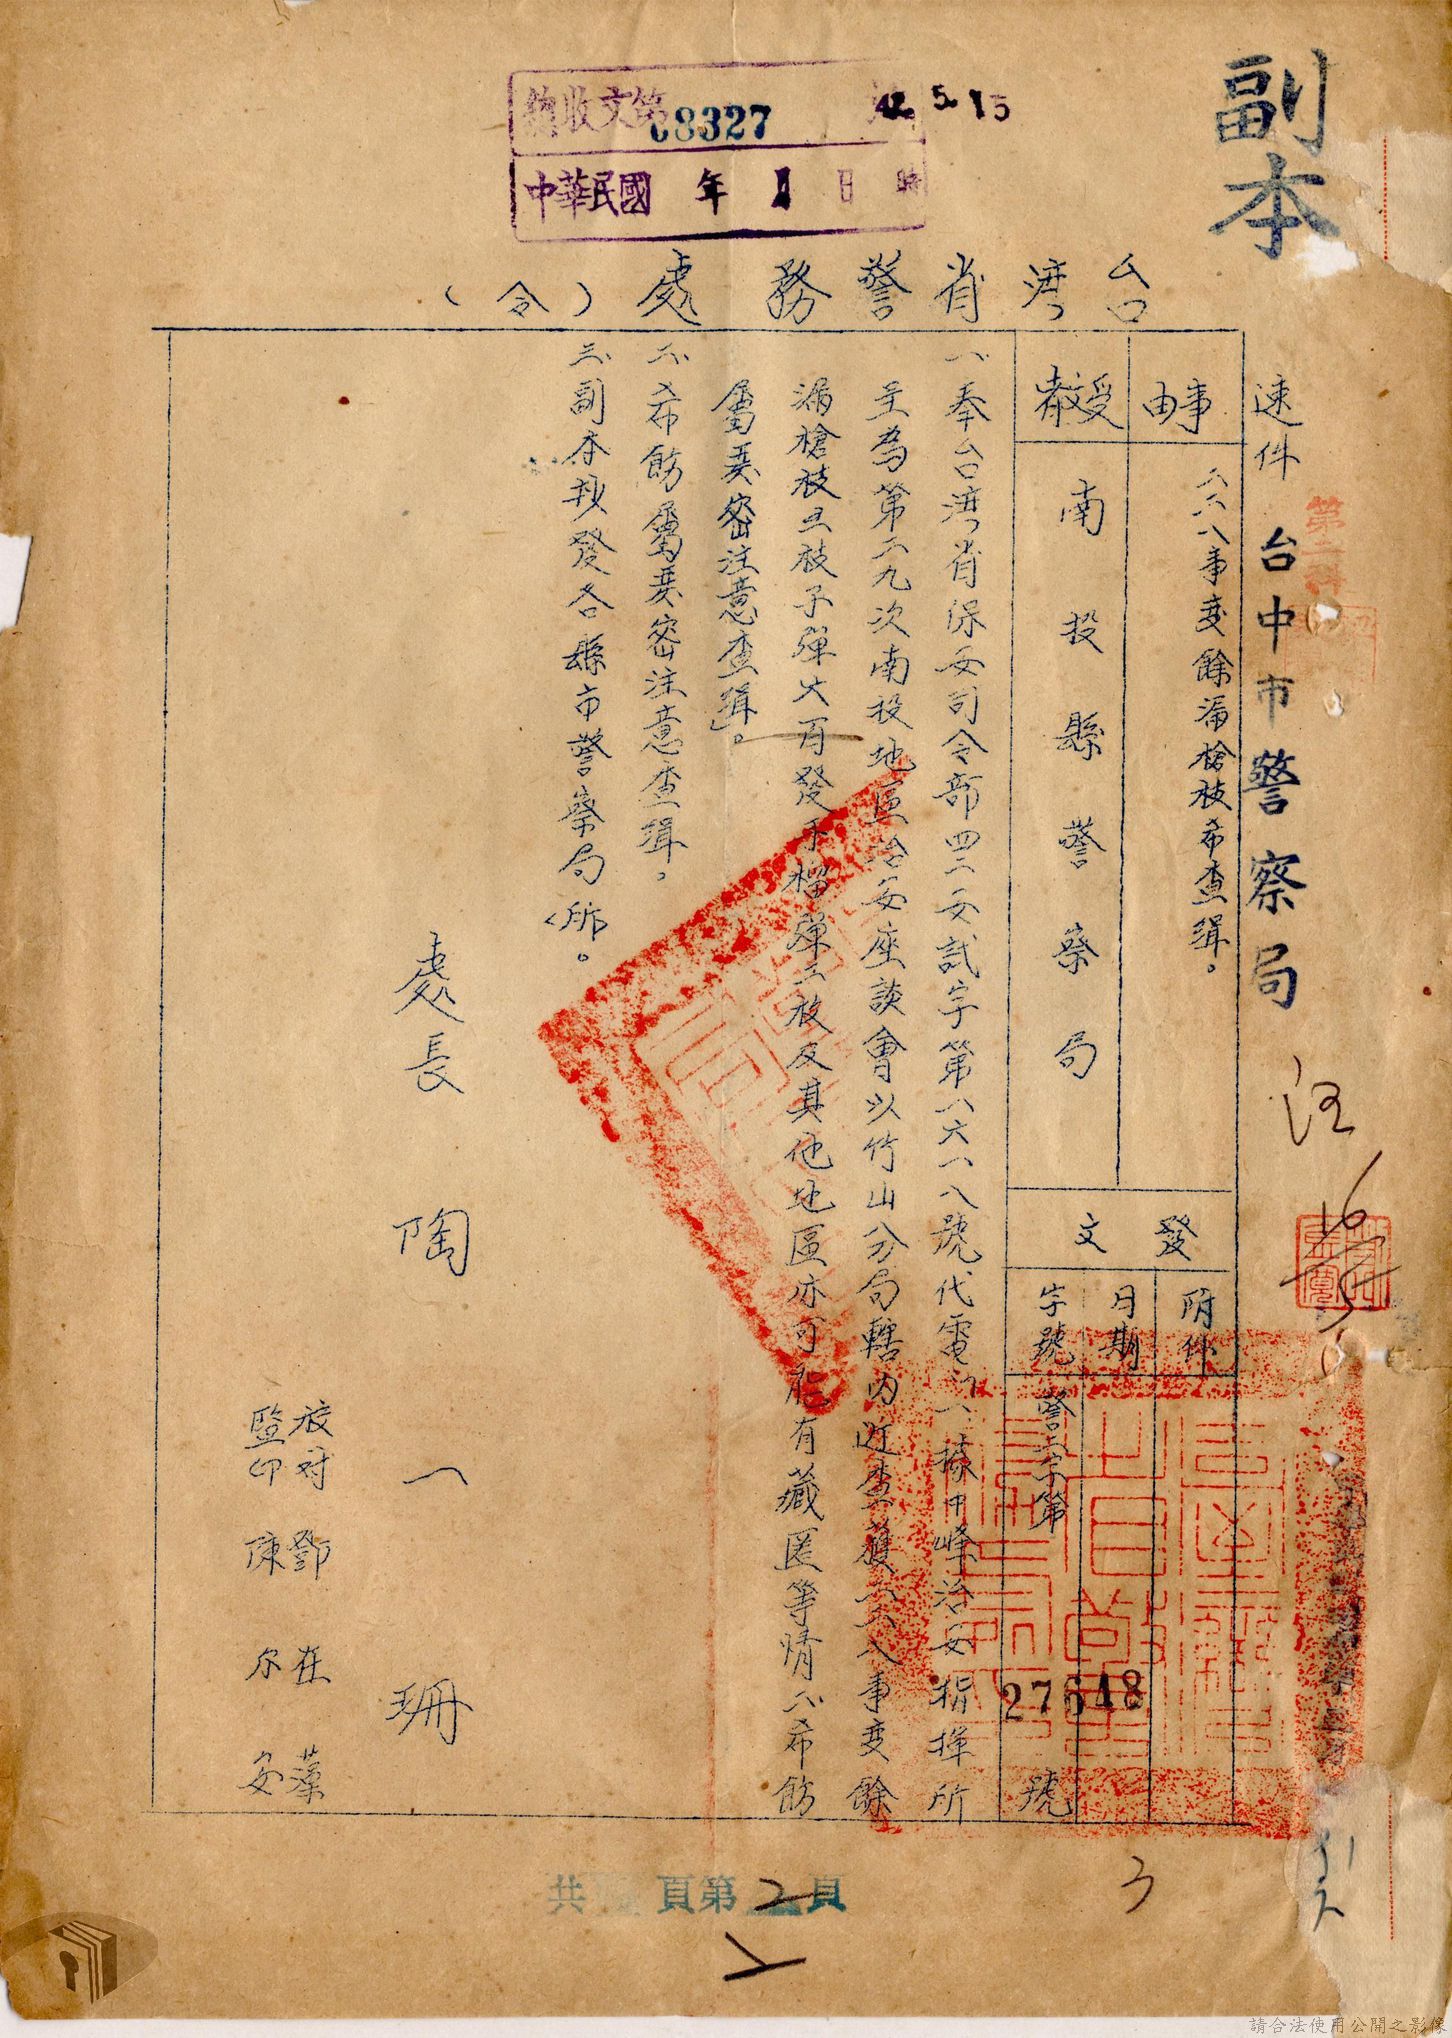 副本
總收文第08327號
42.5.15
中華民國 年 月 日 時
台灣省警務處(令)
速件
台中市警察局
事由
二二八事变餘漏槍枝希查緝。
受文者
南投縣警察局
發文
附件
日期
字號
警二字第27648號
一、奉台湾省保安司令部四二安試字第八六一八號代電「一、據中峰治安指揮所
呈為第二九次南投地區治安座談會以竹山分局轄內近查獲二二八事变餘
漏槍枝五枝子彈六百發手榴彈二枚及其他地區亦可能有藏匿等情二、希飭
屬嚴密注意查緝」。
二、希飭屬嚴密注意查緝。
三、副本抄發各縣市警察局所。
處長 陶一珊
校對 鄧在藻
監印 陳尔安
共 頁第2頁
請合法使用公開之影像